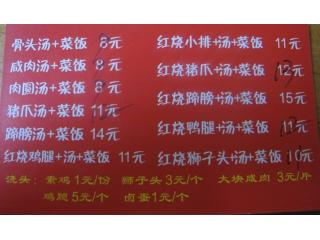 骨头汤+菜饭 8元
咸肉汤+菜饭 8元
肉圆汤+菜饭 8元
猪爪汤+菜饭
蹄膀汤+菜饭 14元
红烧鸡腿+汤+菜饭 11元
红烧小排+汤+菜饭 11元
红烧猪爪+汤+菜饭 12元
红烧蹄膀+汤+菜饭 15元
红烧鸭腿+汤+菜饭 11元
红烧狮子头+汤+菜饭 10元
浇头：素鸡1元/份 狮子头3元/个 大块咸肉3元/片
鸡腿5元/个 卤蛋1元/个